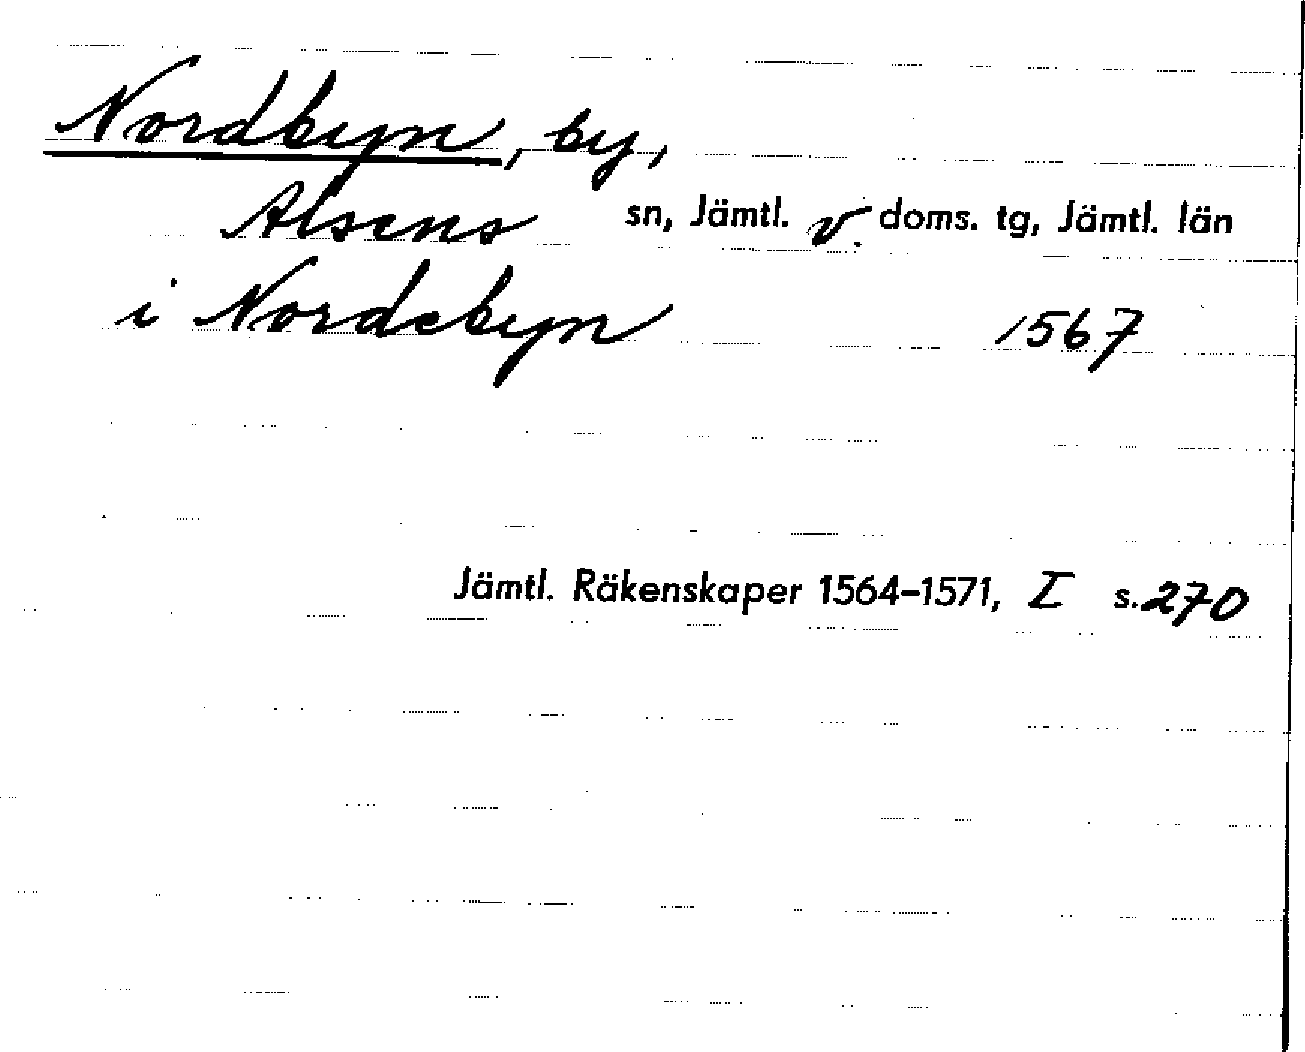 Nordbyn, by,
Alsens sn, Jämtl. v. doms. tg, Jämtl. län
i Nordebyn 1567
Jämtl. Räkenskaper 1564-1571, I s. 270